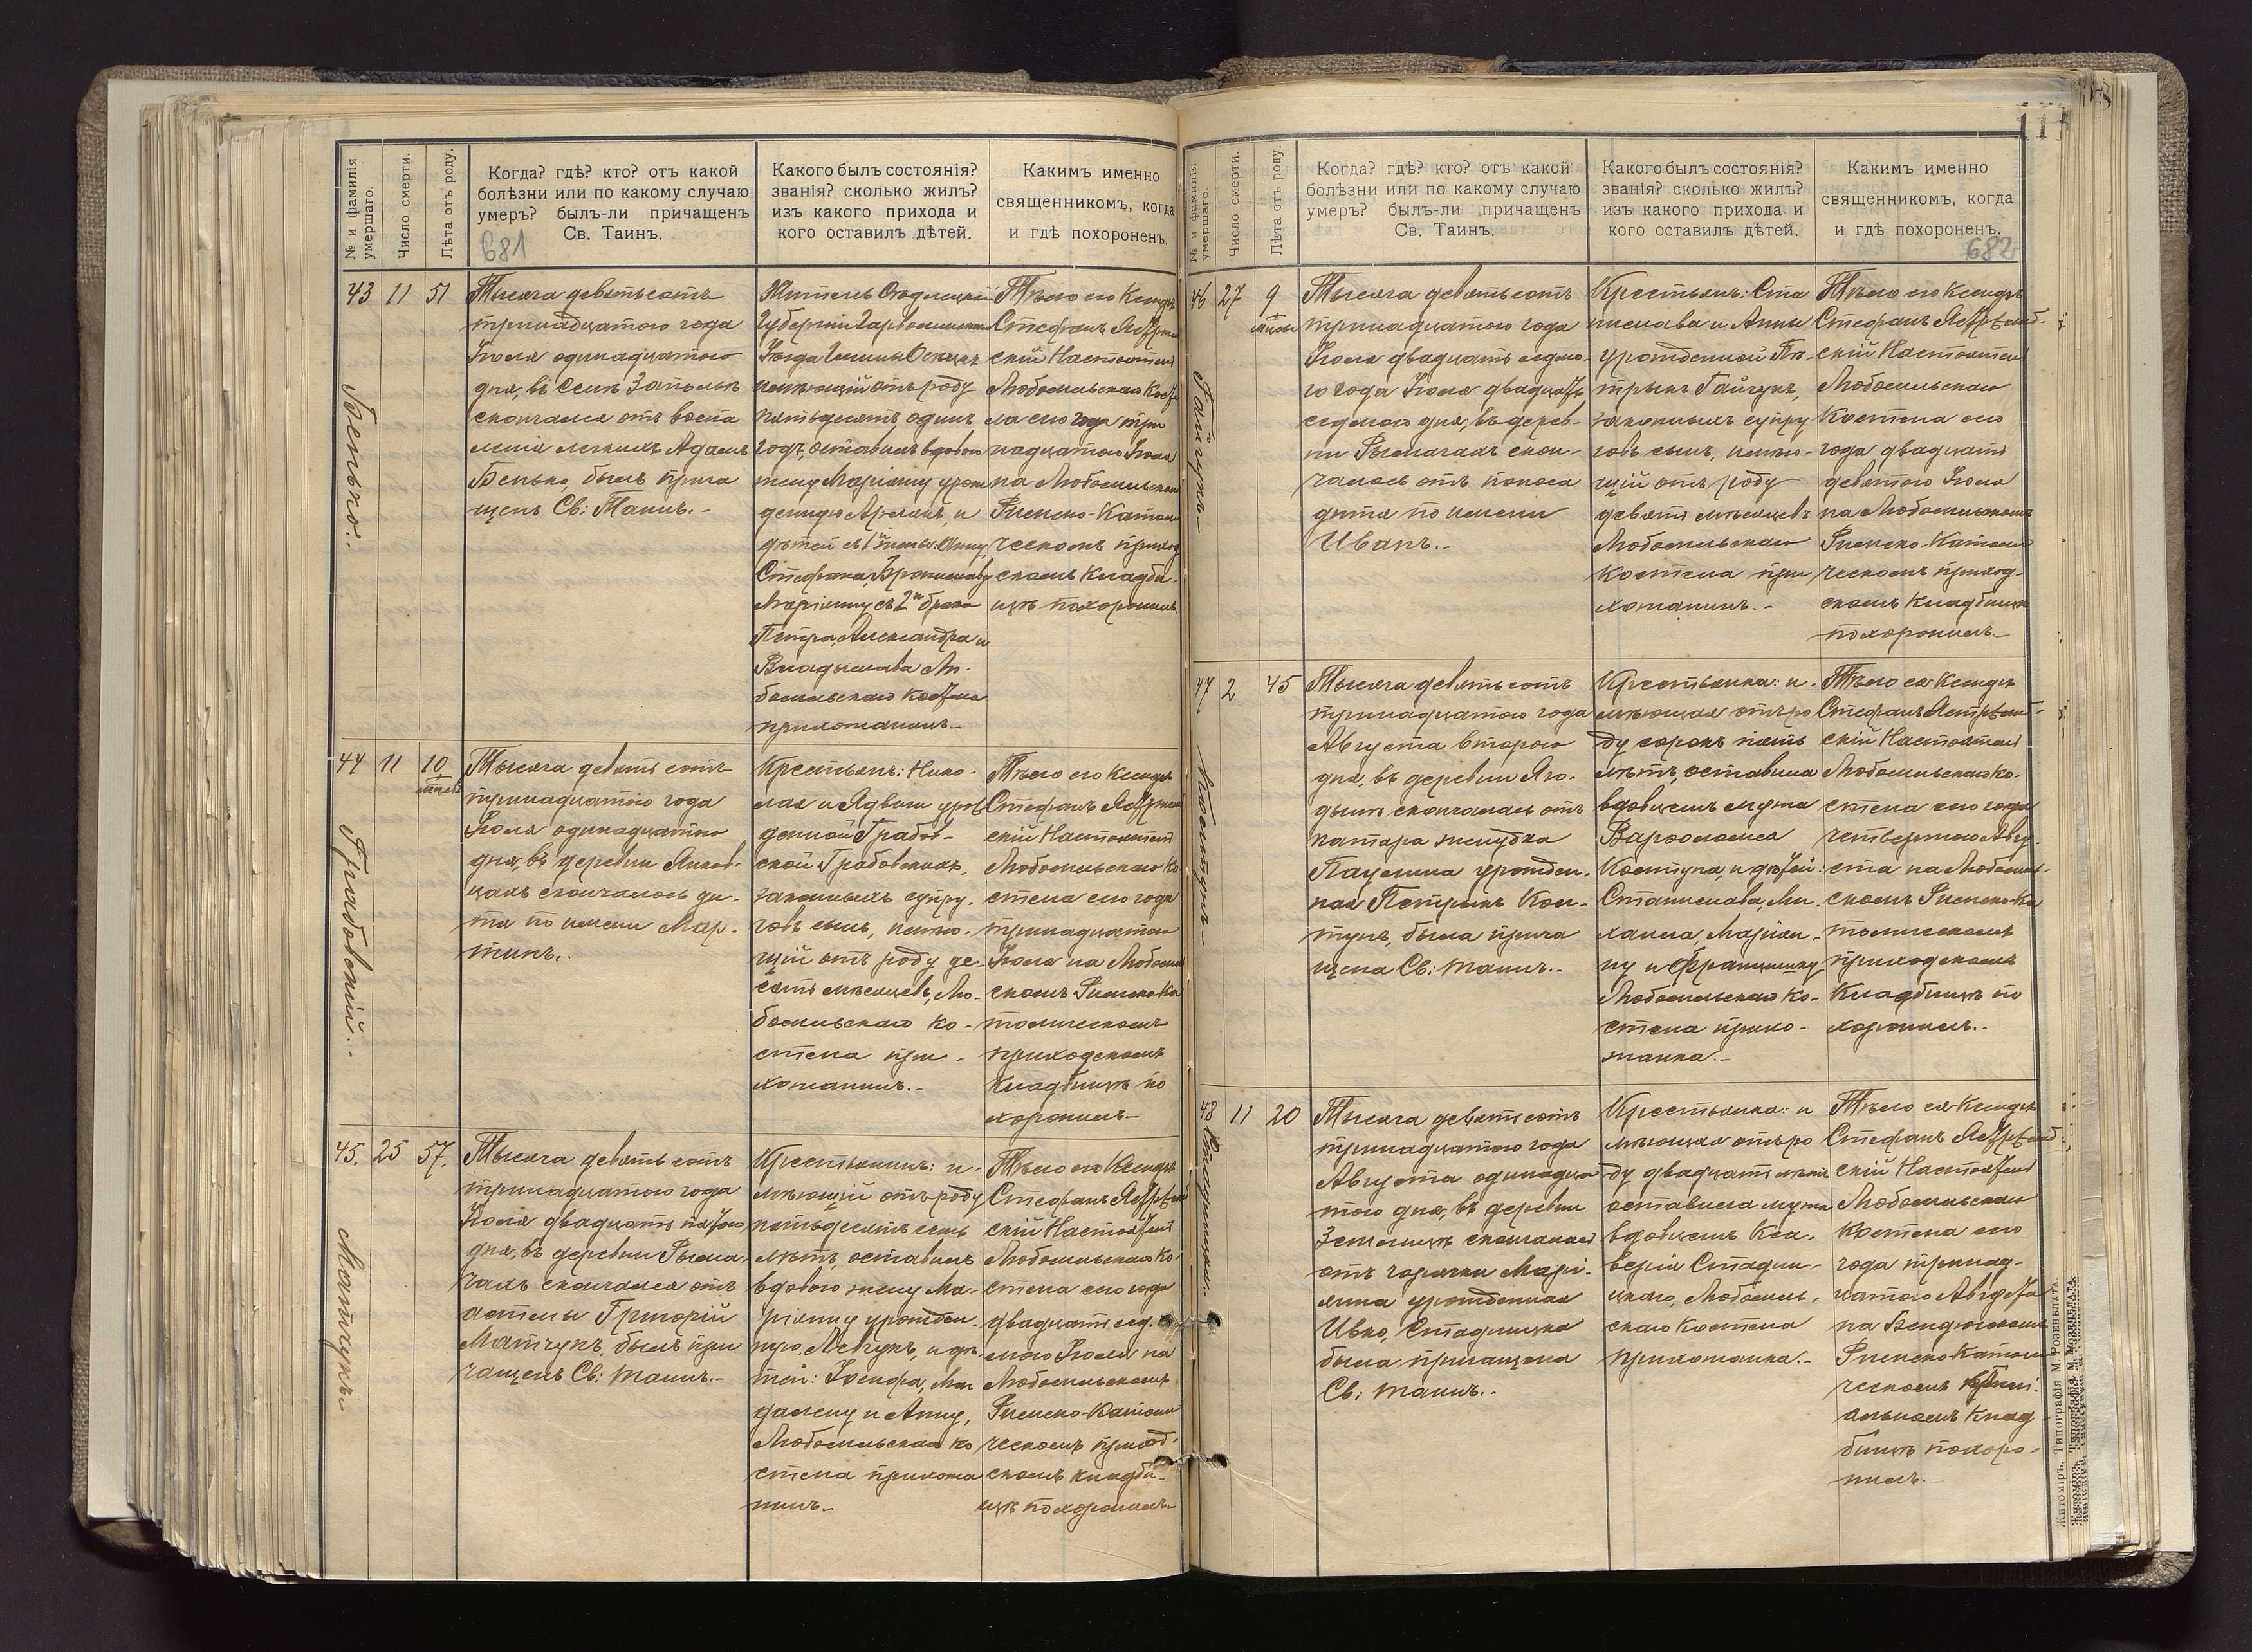 № и фамилія умершаго.
Число смерти.
Лѣта отъ роду.
Когда? гдѣ? кто? отъ какой
болѣзни или по какому случаю
умеръ? былъ-ли причащенъ
Св. Таинъ.
681
Какого былъ состоянія?
званія? сколько жилъ?
изъ какого прихода и
кого оставилъ дѣтей.
Какимъ именно
священникомъ, когда
и гдѣ похороненъ.
43 11 51
Бенько.
Тысяча девятьсотъ
тринадцатого года
Іюля одинадцатого
дня, въ
скончался отъ воспа
ленія легкихъ Адамъ
Бенько, былъ прича
щенъ Св: Таинъ.-
Житель
Губерніи
Уѣзда
имѣющій отъ роду
пятьдесятъ одинъ
годъ, оставилъ вдовою
жену Маріянну урож
денную и
дѣтей съ Анну,
Стефана Брониславу
Маріянну съ 2 брака
Петра, Александра и
Владыслава Лю-
бомльскаго Костела
прихожанинъ-
Тѣло его Ксендзъ
Стефанъ
скій Настоятель
Любомльскаго Косте
ла сего года три
надцатого Іюля
на Любомльскомъ
Римско-Католи
ческомъ приход
скомъ Кладби-
щѣ похоронилъ
44 11 10 мѣсяц
Грабовскій.-
Тысяча девятьсотъ
тринадцатого года
Іюля одинадцатого
дня, въ деревни Янков-
цахъ скончалось ди-
тя по имени Мар-
тинъ.
Крестьянъ: Нико-
лая и Ядвиги урож
денной Грабов-
ской Грабовскихъ,
законныхъ супру-
говъ сынъ, имѣю-
щій отъ роду де-
сять мѣсяцевъ, Лю-
бомльскаго Ко-
стела при-
хожанинъ.-
Тѣло его Ксендзъ
Стефанъ
скій Настоятель
Любомльскаго Ко
стела сего года
тринадцатого
Іюля на Любомль
скомъ Римско-Ка
толическомъ
приходскомъ
Кладбищѣ по
хоронилъ-
45. 25 57.
Матчукъ
Тысяча девятьсотъ
тринадцатого года
Іюля двадцать пятого
дня, въ деревни Рыма-
чахъ скончался отъ
астмы Григорій
Матчукъ, былъ при
чащенъ Св: Таинъ.-
Крестьянинъ: и-
мѣющій отъ роду
пятьдесятъ семь
лѣтъ, оставилъ
вдовою жену Ма-
ріянну урожден-
ную Левчукъ, и дѣ-
тей: Іосифа, Маг
далену и Анну,
Любомльскаго Ко
стела прихожа
нинъ-
Тѣло его Ксендзъ
Стефанъ
скій Настоятель
Любомльскаго Ко-
стела сего года
двадцать седь-
мого Іюля на
Любомльскомъ
Римско-Католи
ческомъ приход-
скомъ кладби-
щѣ похоронилъ-
№ и фамилія умершаго.
Число смерти.
Лѣта отъ роду.
Когда? гдѣ? кто? отъ какой
болѣзни или по какому случаю
умеръ? былъ-ли причащенъ
Св. Таинъ.
Какого былъ состоянія?
званія? сколько жилъ?
изъ какого прихода и
кого оставилъ дѣтей.
Какимъ именно
священникомъ, когда
и гдѣ похороненъ.
682
46 27 9 мѣсяц
Гайчукъ-
Тысяча девятьсотъ
тринадцатого года
Іюля двадцать седмо-
го года Іюля двадцать
седмого дня, въ дерев-
ни Рымачахъ скон-
чалось отъ поноса
дитя по имени
Иванъ.-
Крестьянъ: Ста
нислава и Анны
урожденной Пе-
трыкъ Гайчукъ,
законныхъ супру
говъ сынъ, имѣю-
щій отъ роду
девять мѣсяцевъ
Любомльскаго
Костела при
хожанинъ.-
Тѣло его Ксендзъ
Стефанъ Ястрѣмб-
скій Настоятель
Любомльскаго
Костела сего
года двадцать
девятого Іюля
на Любомльскомъ
Римско-Католи
ческомъ приход-
скомъ Кладбищѣ
похоронилъ-
47 2 45
Тысяча девятьсотъ
тринадцатого года
Августа второго
дня, въ деревни Яго-
дынѣ скончалась отъ
катара желудка
Паулина урожден-
ная Петрыкъ Кол-
тунъ, была прича
щена Св: таинъ.-
Крестьянка: и-
мѣющая отъ ро
ду сорокъ пять
лѣтъ, оставила
вдовцемъ мужа
Варѳоломея
Колтуна, и дѣтей:
Станислава, Ми-
хаила, Маріян-
ну и Францишку
Любомльскаго Ко-
стела прихо-
жанка.-
Тѣло ея Ксендзъ
Стефанъ Ястрѣмб-
скій Настоятель
Любомльскаго Ко-
стела сего года
четвертого Авгу-
ста на Любомль-
скомъ Римско-Ка
толическомъ
приходскомъ
Кладбищѣ по
хоронилъ.-
48 11 20
Стадницка.
Тысяча девятьсотъ
тринадцатого года
Августа одинадца
того дня, въ деревни
скончалась
отъ горячки Марі-
янна урожденная
Ивко, Стадницка
была причащена
Св: таинъ.-
Крестьянка: и
мѣющая отъ ро
ду двадцать лѣтъ
оставила мужа
вдовцемъ Кса-
верія Стадни-
цкаго, Любомль-
скаго Костела
прихожанка.-
Тѣло ея Ксендзъ
Стефанъ Ястрѣмб
скій Настоятель
Любомльскаго
Костела сего
года тринад-
цатого Августа
на
Римско-Католи
ческомъ
альномъ Клад
бищѣ похоро-
нилъ.-
Житоміръ. Типографія М. Розенблата.